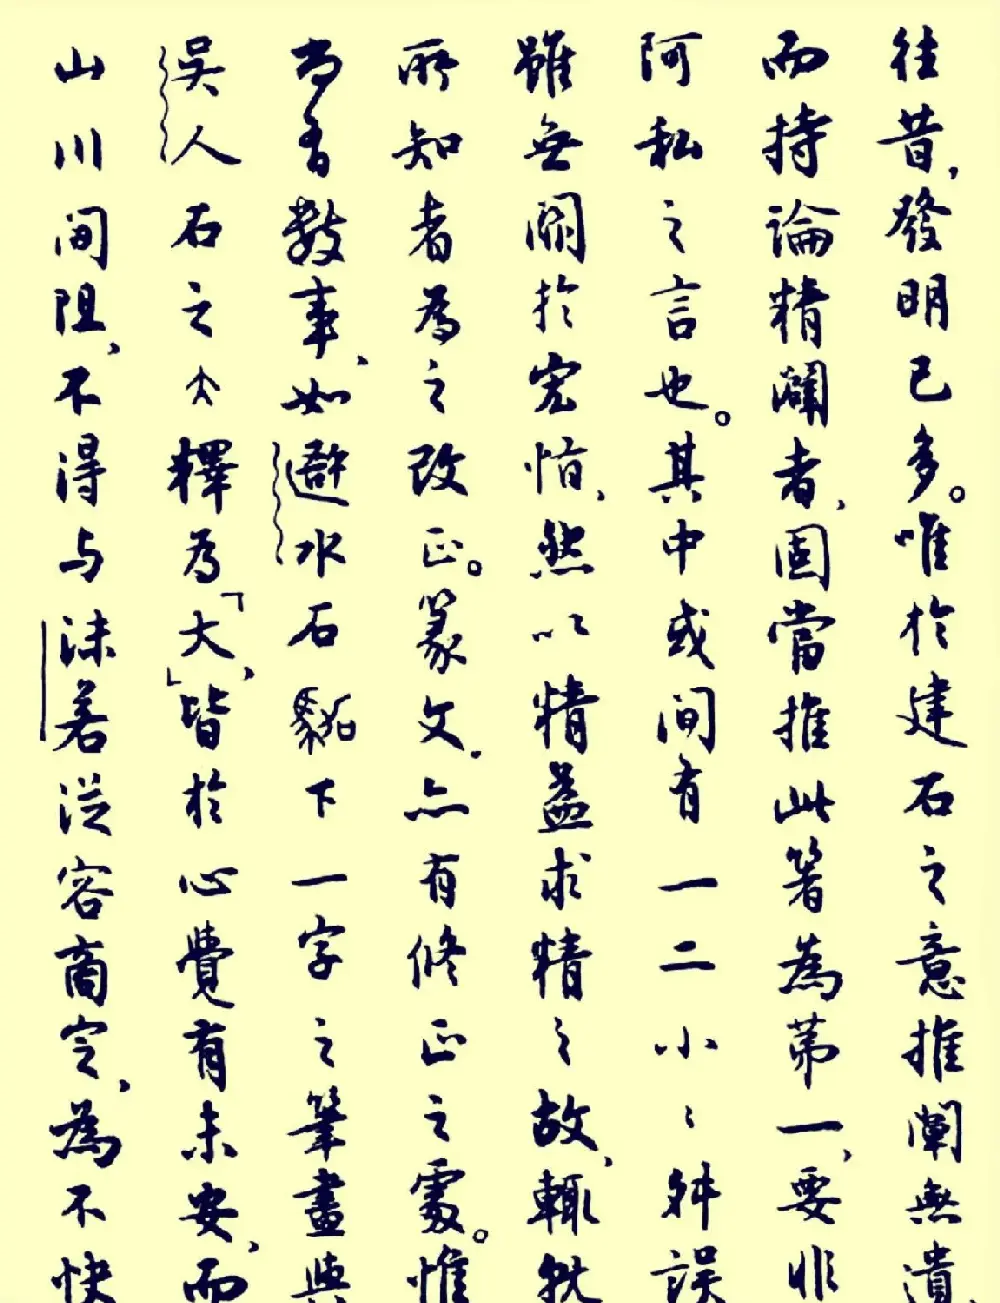 往昔,發明已多。唯於建石之意推闡無遺,
而持論精闢者,固當推此箸為第一,要非
阿私之言也。其中或間有一二小小舛誤
雖無關於宏恉,然以精益求精之故,輒就
所知者為之改正。篆文.亦有修正之處。惟
尚有數事,如避水石下一字之筆畫與
吳人石之大釋為「大」,皆於心覺有未安,而
山川间阻,不得与沫若從容商定,為不快